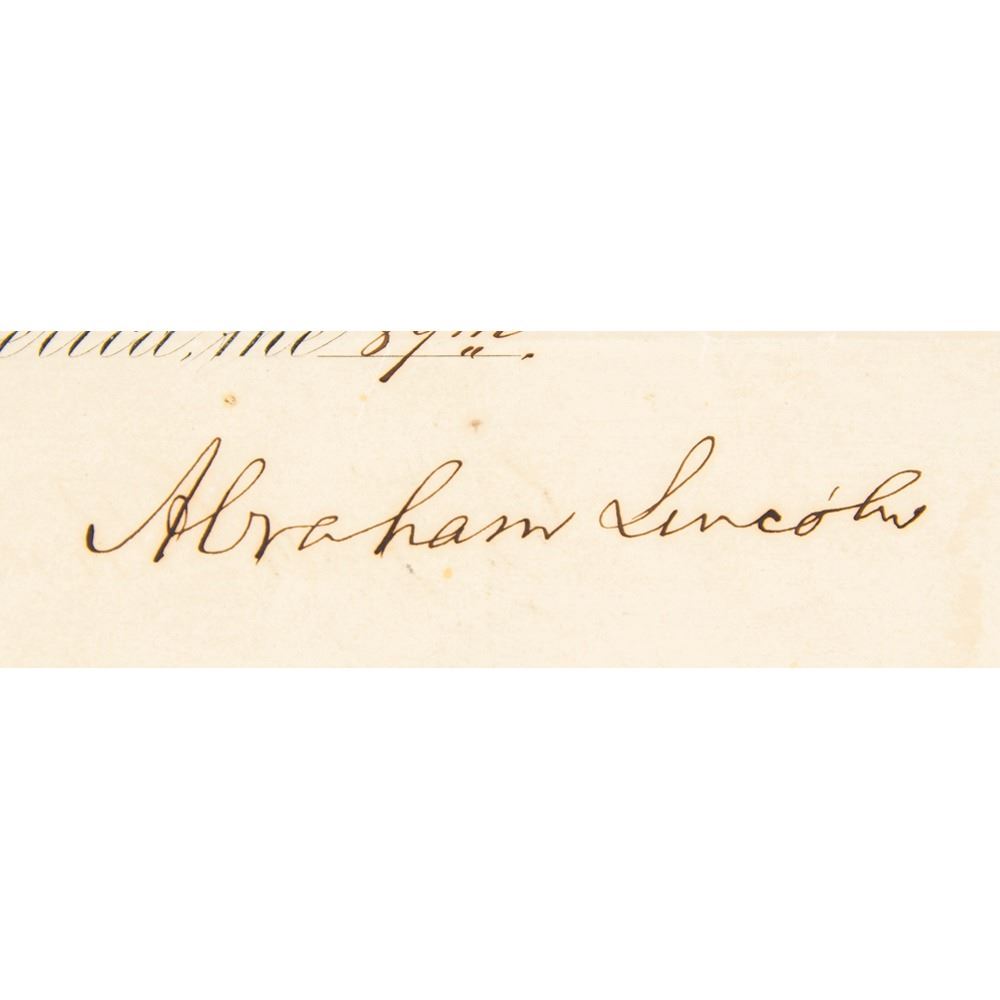 erica, the 89th.
Abraham Lincoln